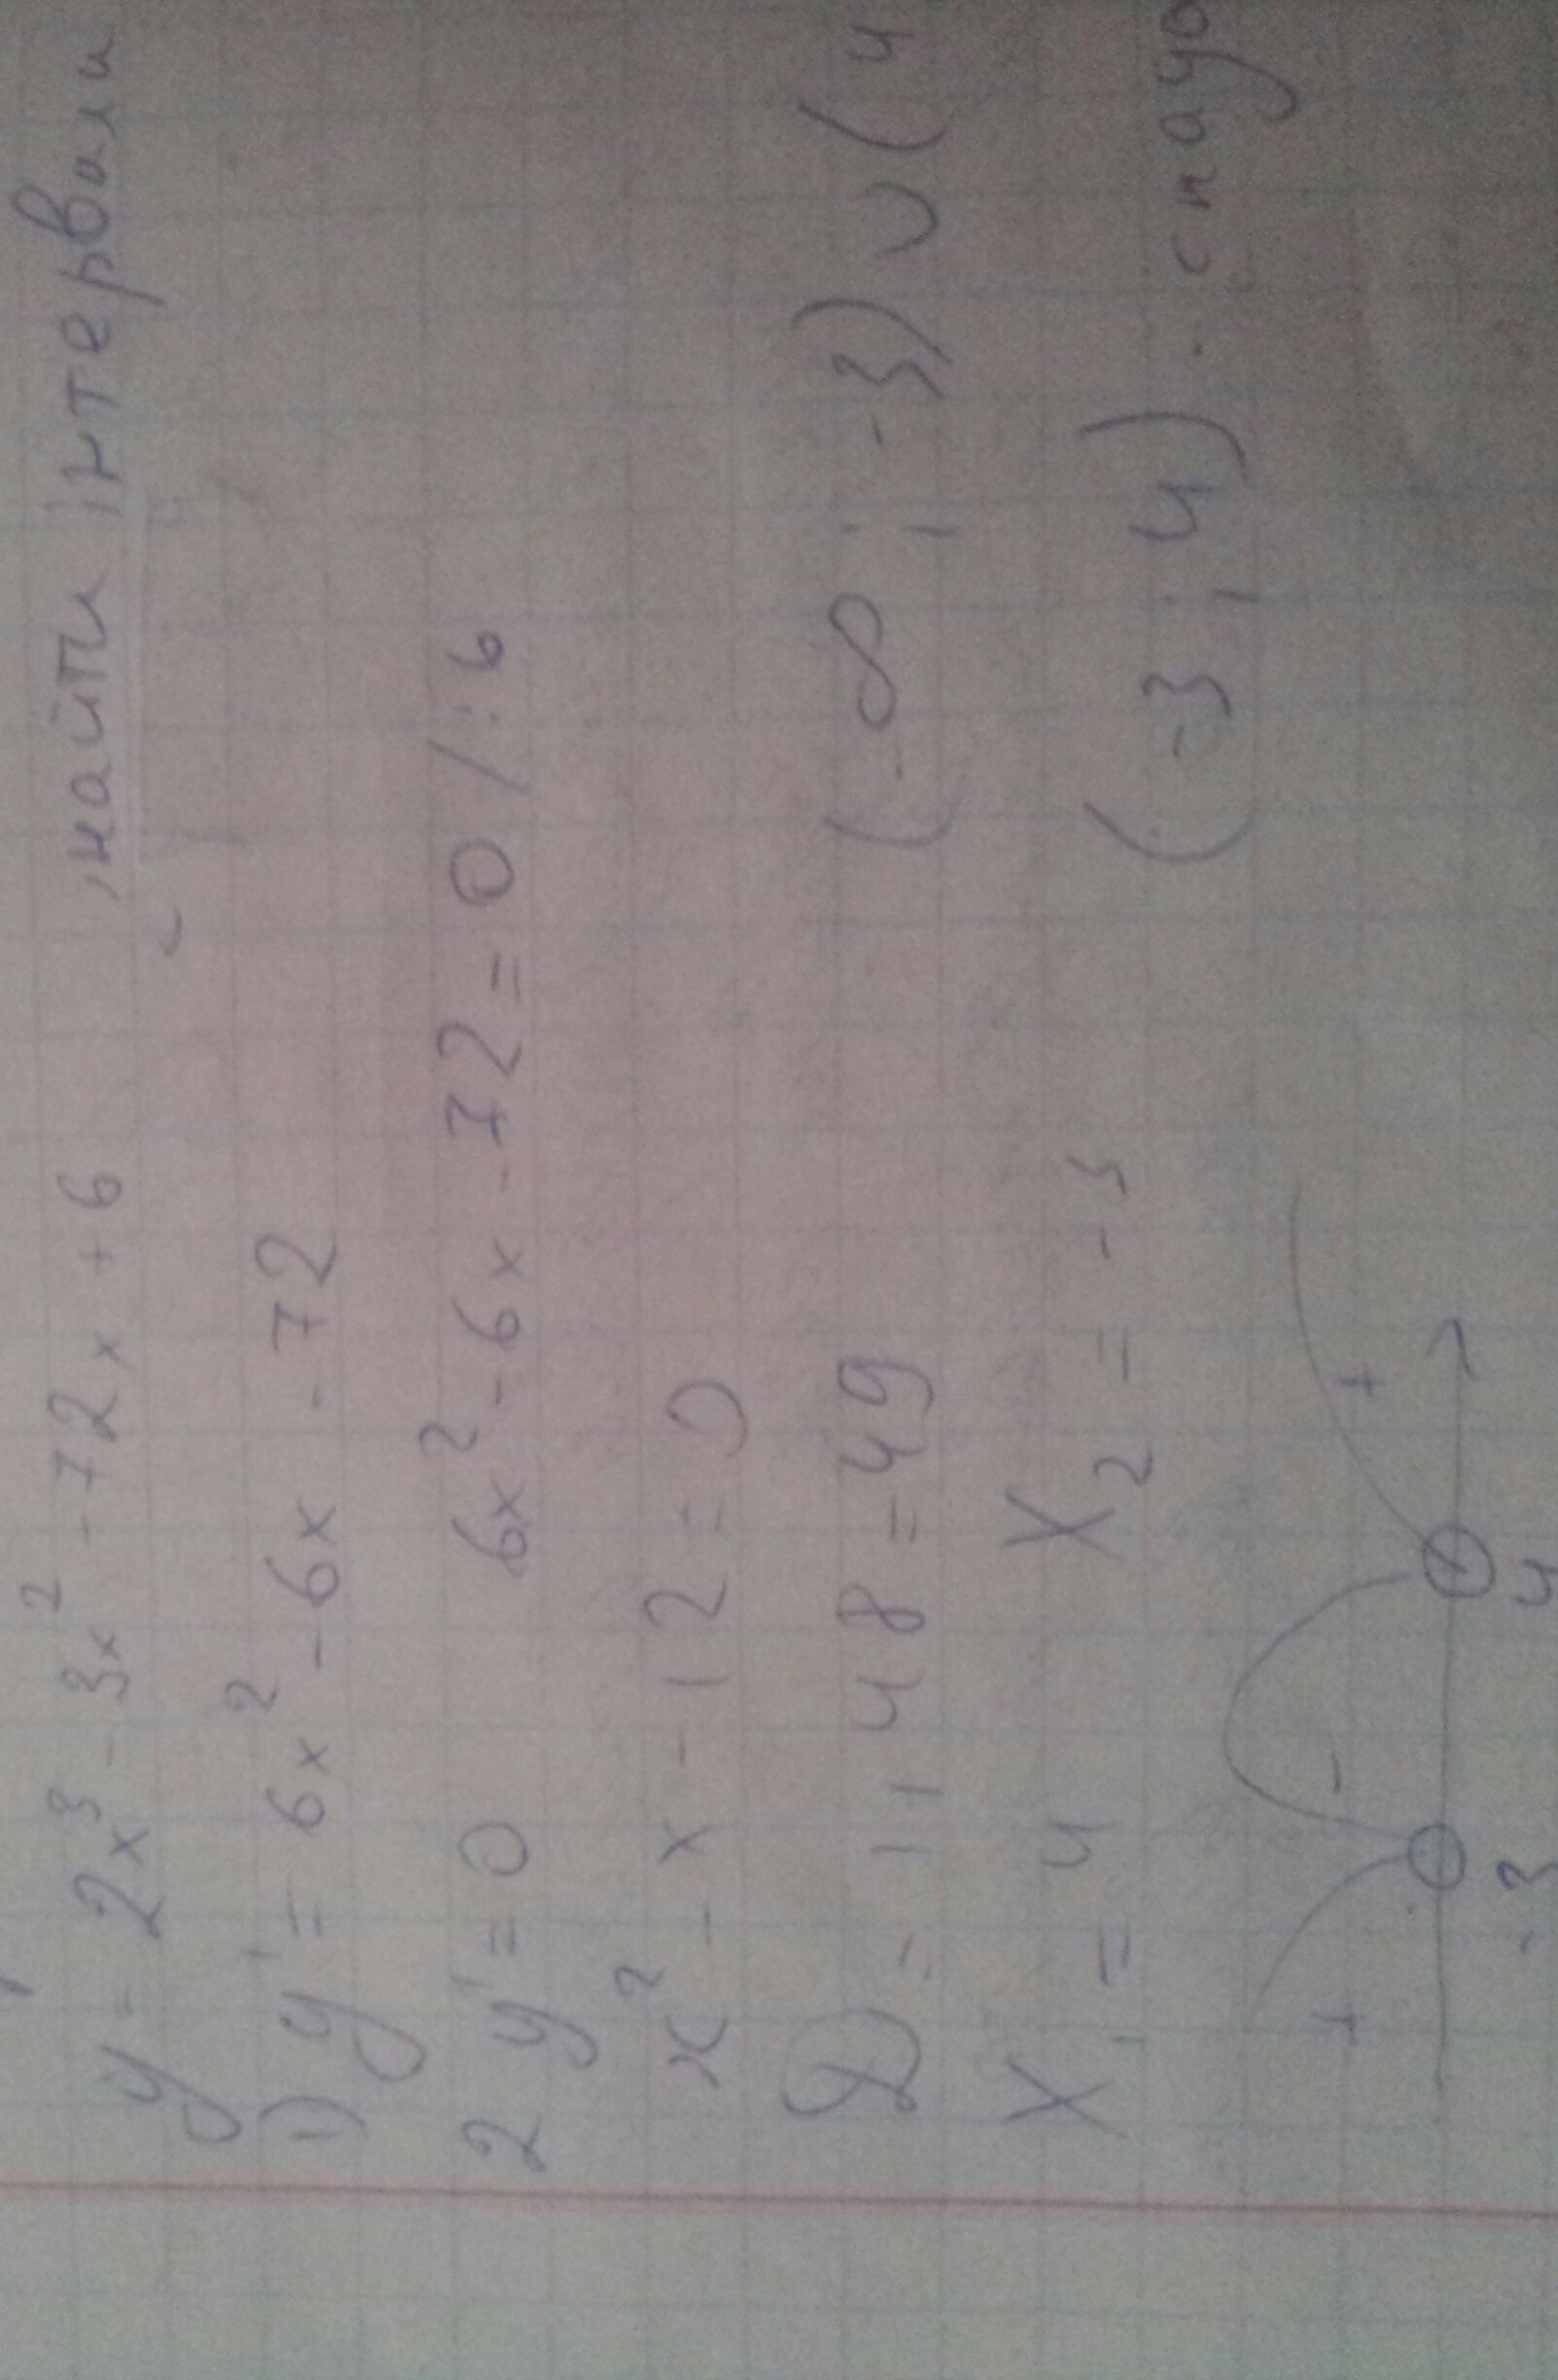 y = 2x³ - 3x² - 72x + 6 , найти інтервали
1) y' = 6x² - 6x - 72
2 y' = 0 6x² - 6x - 72 = 0 / : 6
x² - x - 12 = 0
D = 1 + 48 = 49 (-∞ ; -3) ∪ (4
X₁ = 4 X₂ = -3 (-3 ; 4) - спаду
+ - +
-3 4